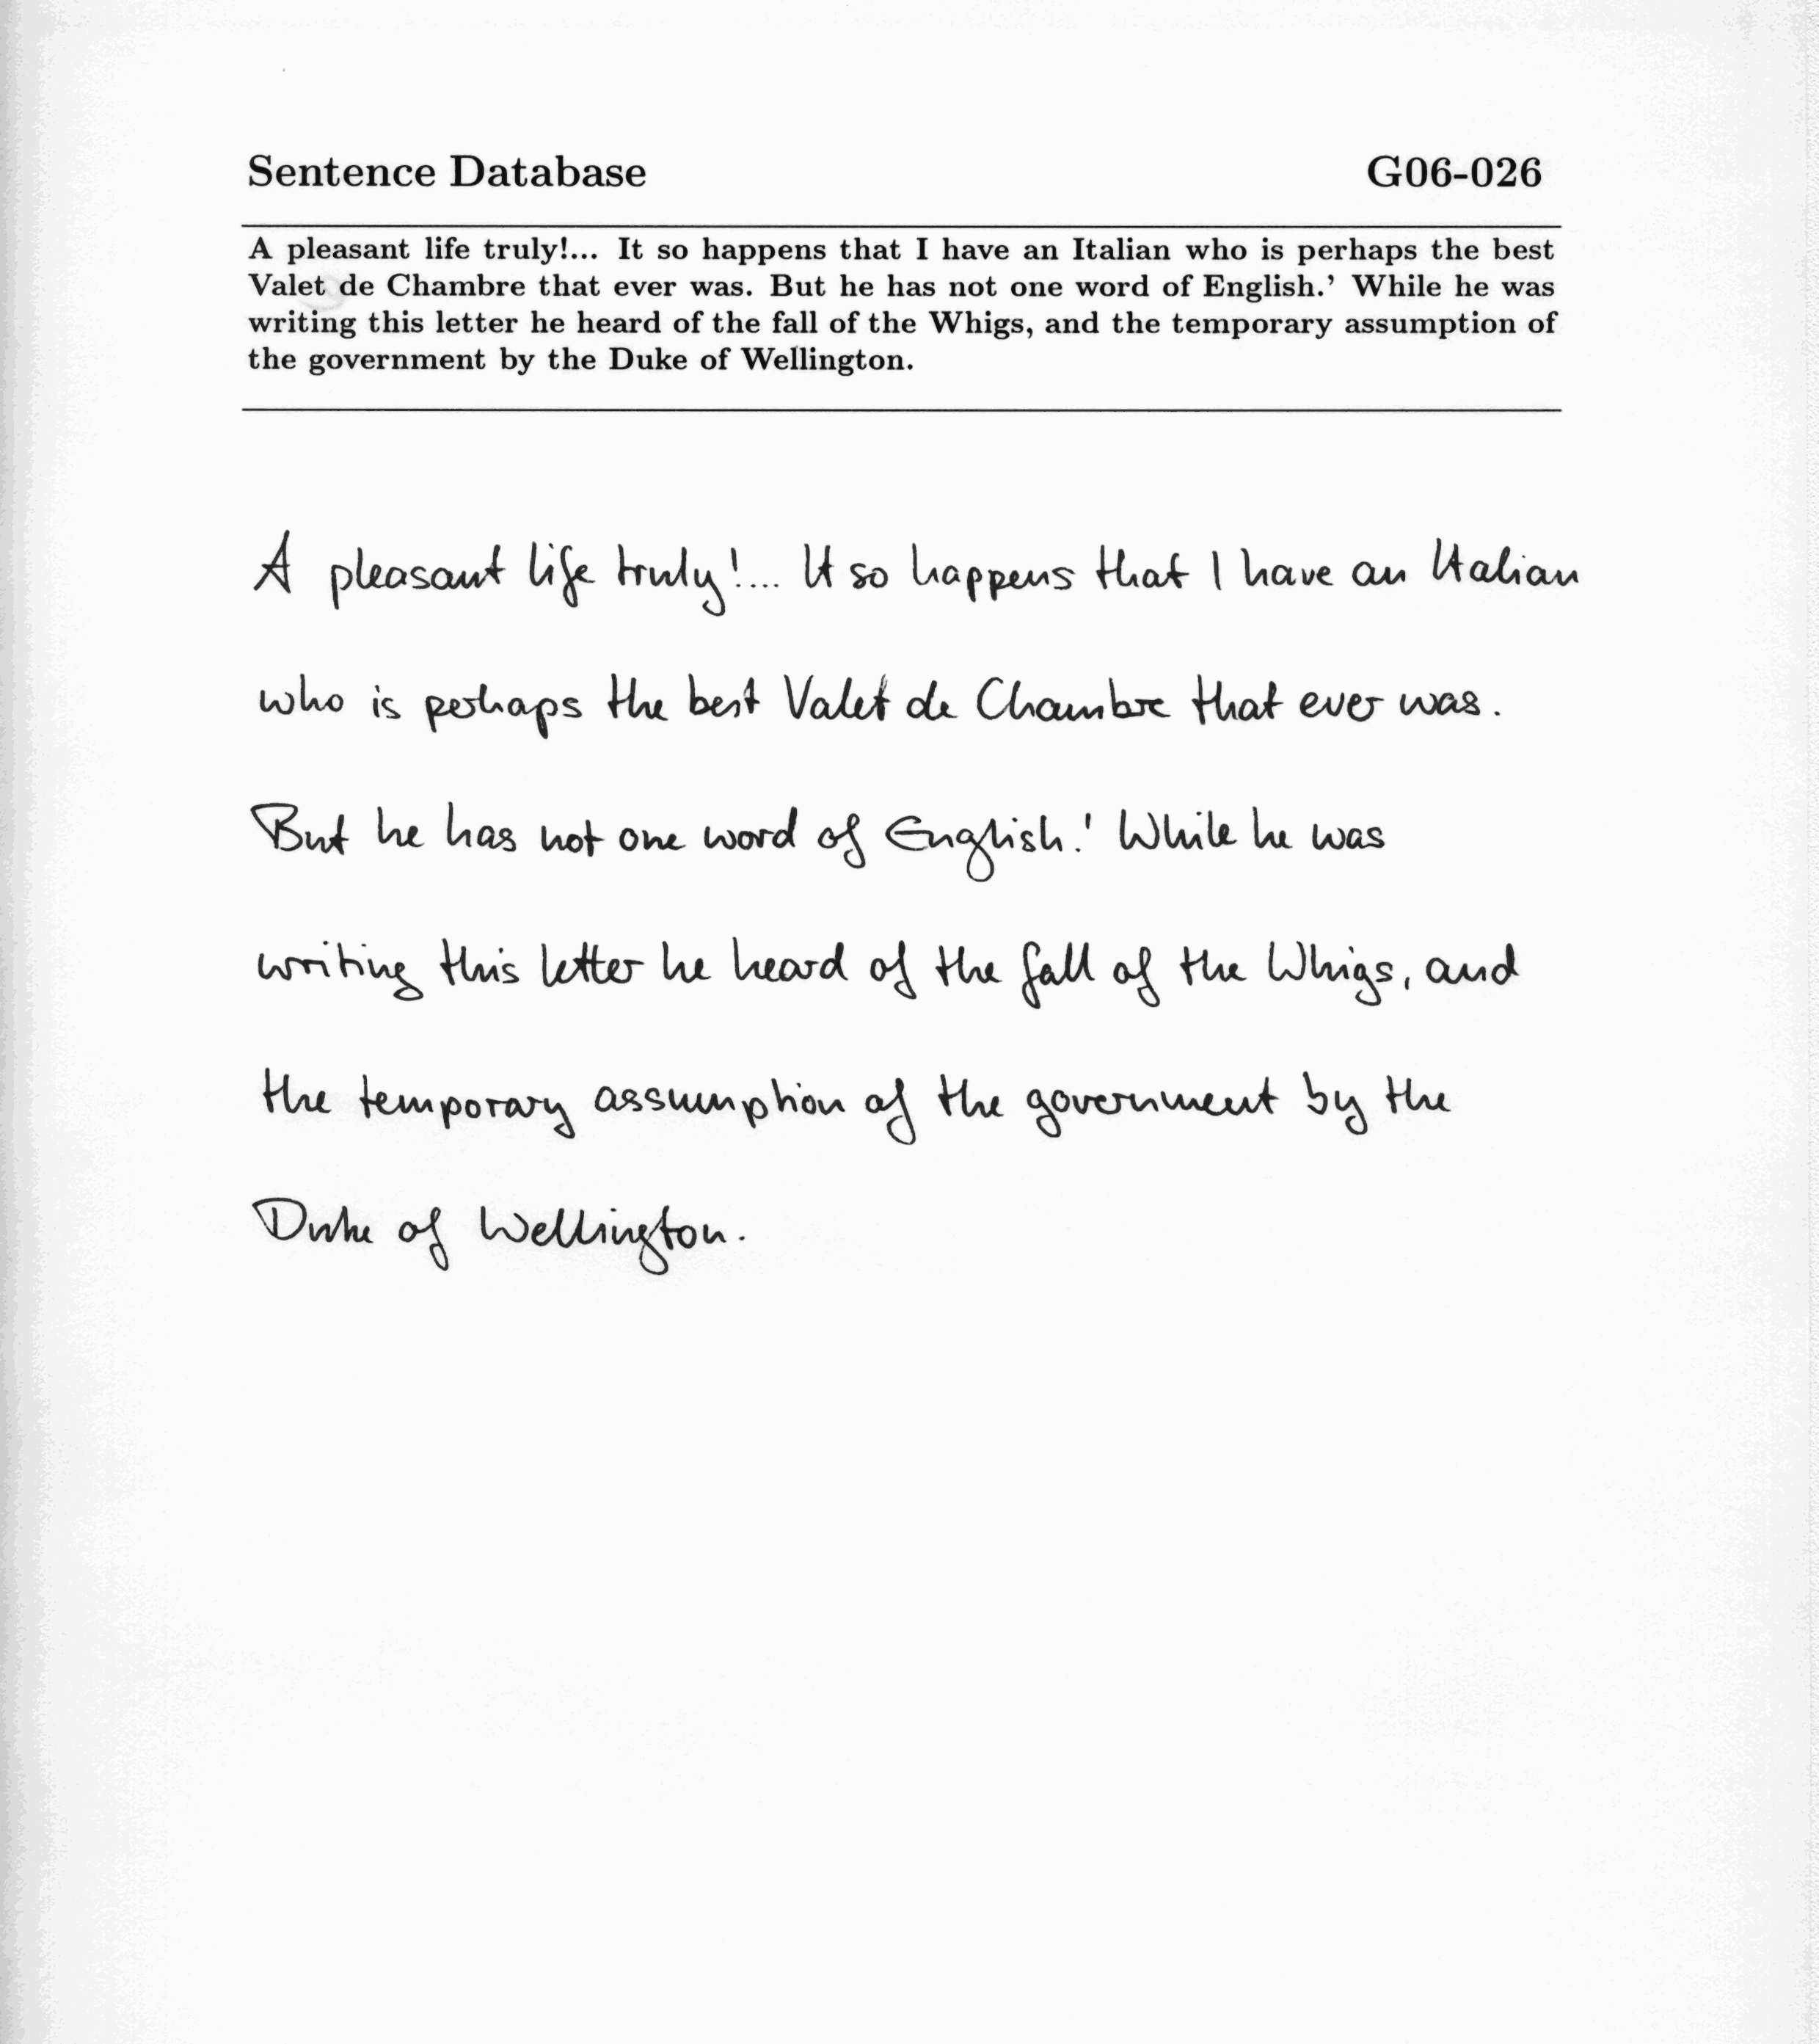 Sentence Database G06-026
A pleasant life truly!... It so happens that I have an Italian who is perhaps the best
Valet de Chambre that ever was. But he has not one word of English.' While he was
writing this letter he heard of the fall of the Whigs, and the temporary assumption of
the government by the Duke of Wellington.
A pleasant life truly!... It so happens that I have an Italian
who is perhaps the best Valet de Chambre that ever was.
But he has not one word of English.' While he was
writing this letter he heard of the fall of the Whigs, and
the temporary assumption of the government by the
Duke of Wellington.